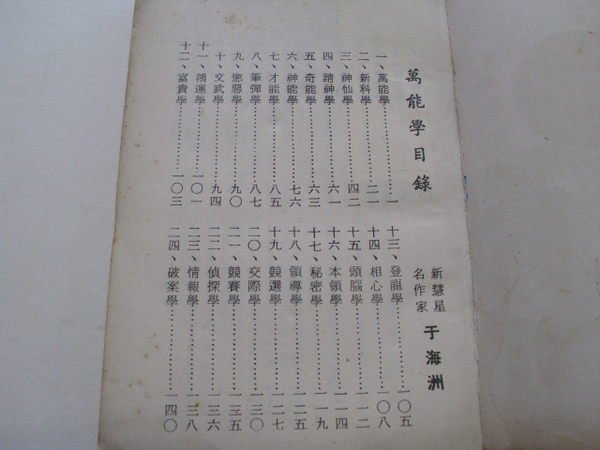 萬能學目錄
一、萬能學…………一
二、新科學…………二一
三、神仙學…………四二
四、請神學…………六一
五、奇能學…………六三
六、神能學…………七六
七、才能學…………八五
八、筆彈學…………八七
九、懲惡學…………九〇
十、文武學…………九四
十一、鴻運學…………一〇一
十二、富貴學…………一〇三
新慧星
名作家
于海洲
十三、登龍學…………一〇五
十四、相心學…………一〇八
十五、頭腦學…………一一二
十六、本領學…………一一四
十七、秘密學…………一一九
十八、領導學…………一二五
十九、競選學…………一二七
二〇、交際學…………一三〇
二一、競賽學…………一三五
二二、偵探學…………一三六
二三、情報學…………一三八
二四、破案學…………一四〇